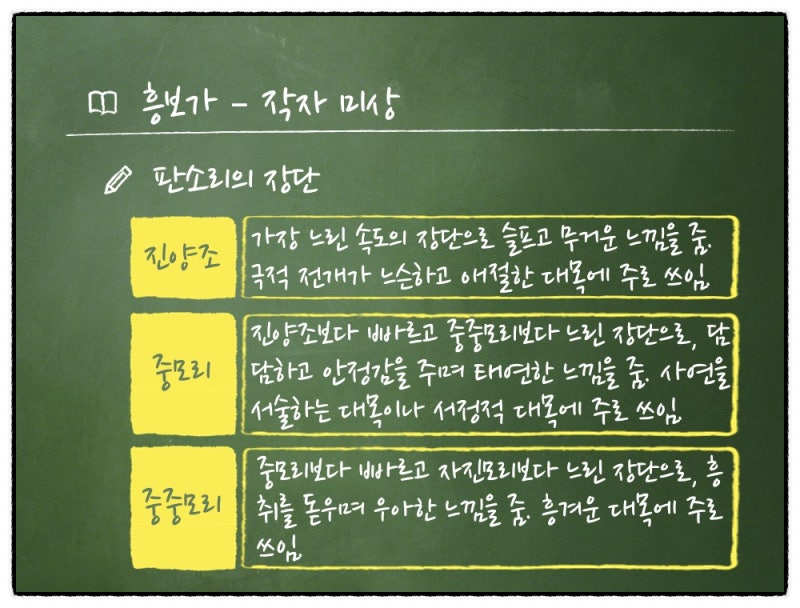 흥보가 - 작자 미상
판소리의 장단
진양조
가장 느린 속도의 장단으로 슬프고 무거운 느낌을 줌.
극적 전개가 느슨하고 애절한 대목에 주로 쓰임.
중모리
진양조보다 빠르고 중중모리보다 느린 장단으로, 담
담하고 안정감을 주며 태연한 느낌을 줌. 사연을
서술하는 대목이나 서정적 대목에 주로 쓰임.
중중모리
중모리보다 빠르고 자진모리보다 느린 장단으로, 흥
취를 돋우며 우아한 느낌을 줌. 흥겨운 대목에 주로
쓰임.